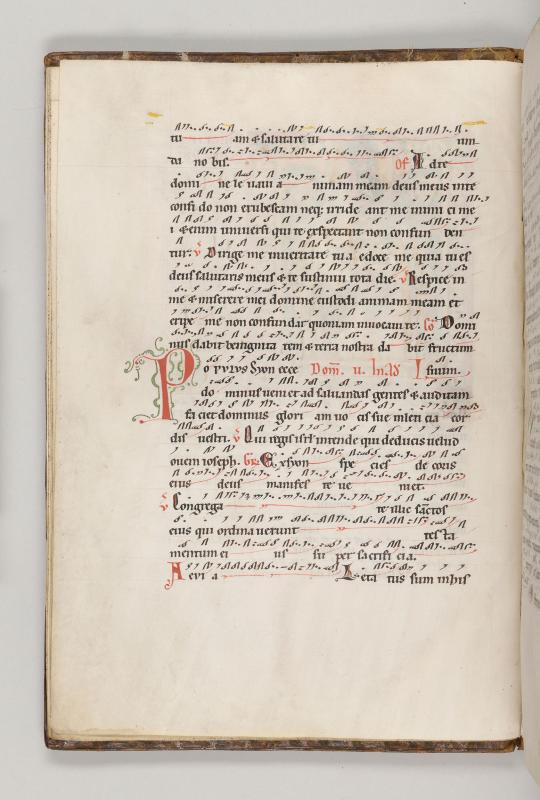 tu am & salutare tu um
da no bis. Of Ad te
domi ne le vaui a nimam meam deus meus in te
confi do non erubescam neq; irride ant me inimi ci me
i & enim uniuersi qui te exspectant non confun den
tur. Dirige me in ueritate tua edoce me quia tu es
deus salutaris meus & te sustinui tota die. Respice in
me & miserere mei domine custodi animam meam et
eripe me non confundar quoniam inuocaui te. Co Domi
nus dabit benignita tem & terra nostra da bit fructum
Populus Syon ecce Dom. ii. suum.
do minus veni et ad saluandas gentes & auditam
fa ciet dominus glori am uo cis sue in leti cia cor
dis uestri. Qui regis isrl intende qui deducis uelud
ouem ioseph. Gr. Ex syon spe cies de coris
eius deus manifes te ve niet.
Congrega te illic sanctos
eius qui ordina uerunt tes ta
mentum ei us su per sacrifi cia.
Aevi a Leta tus sum in his